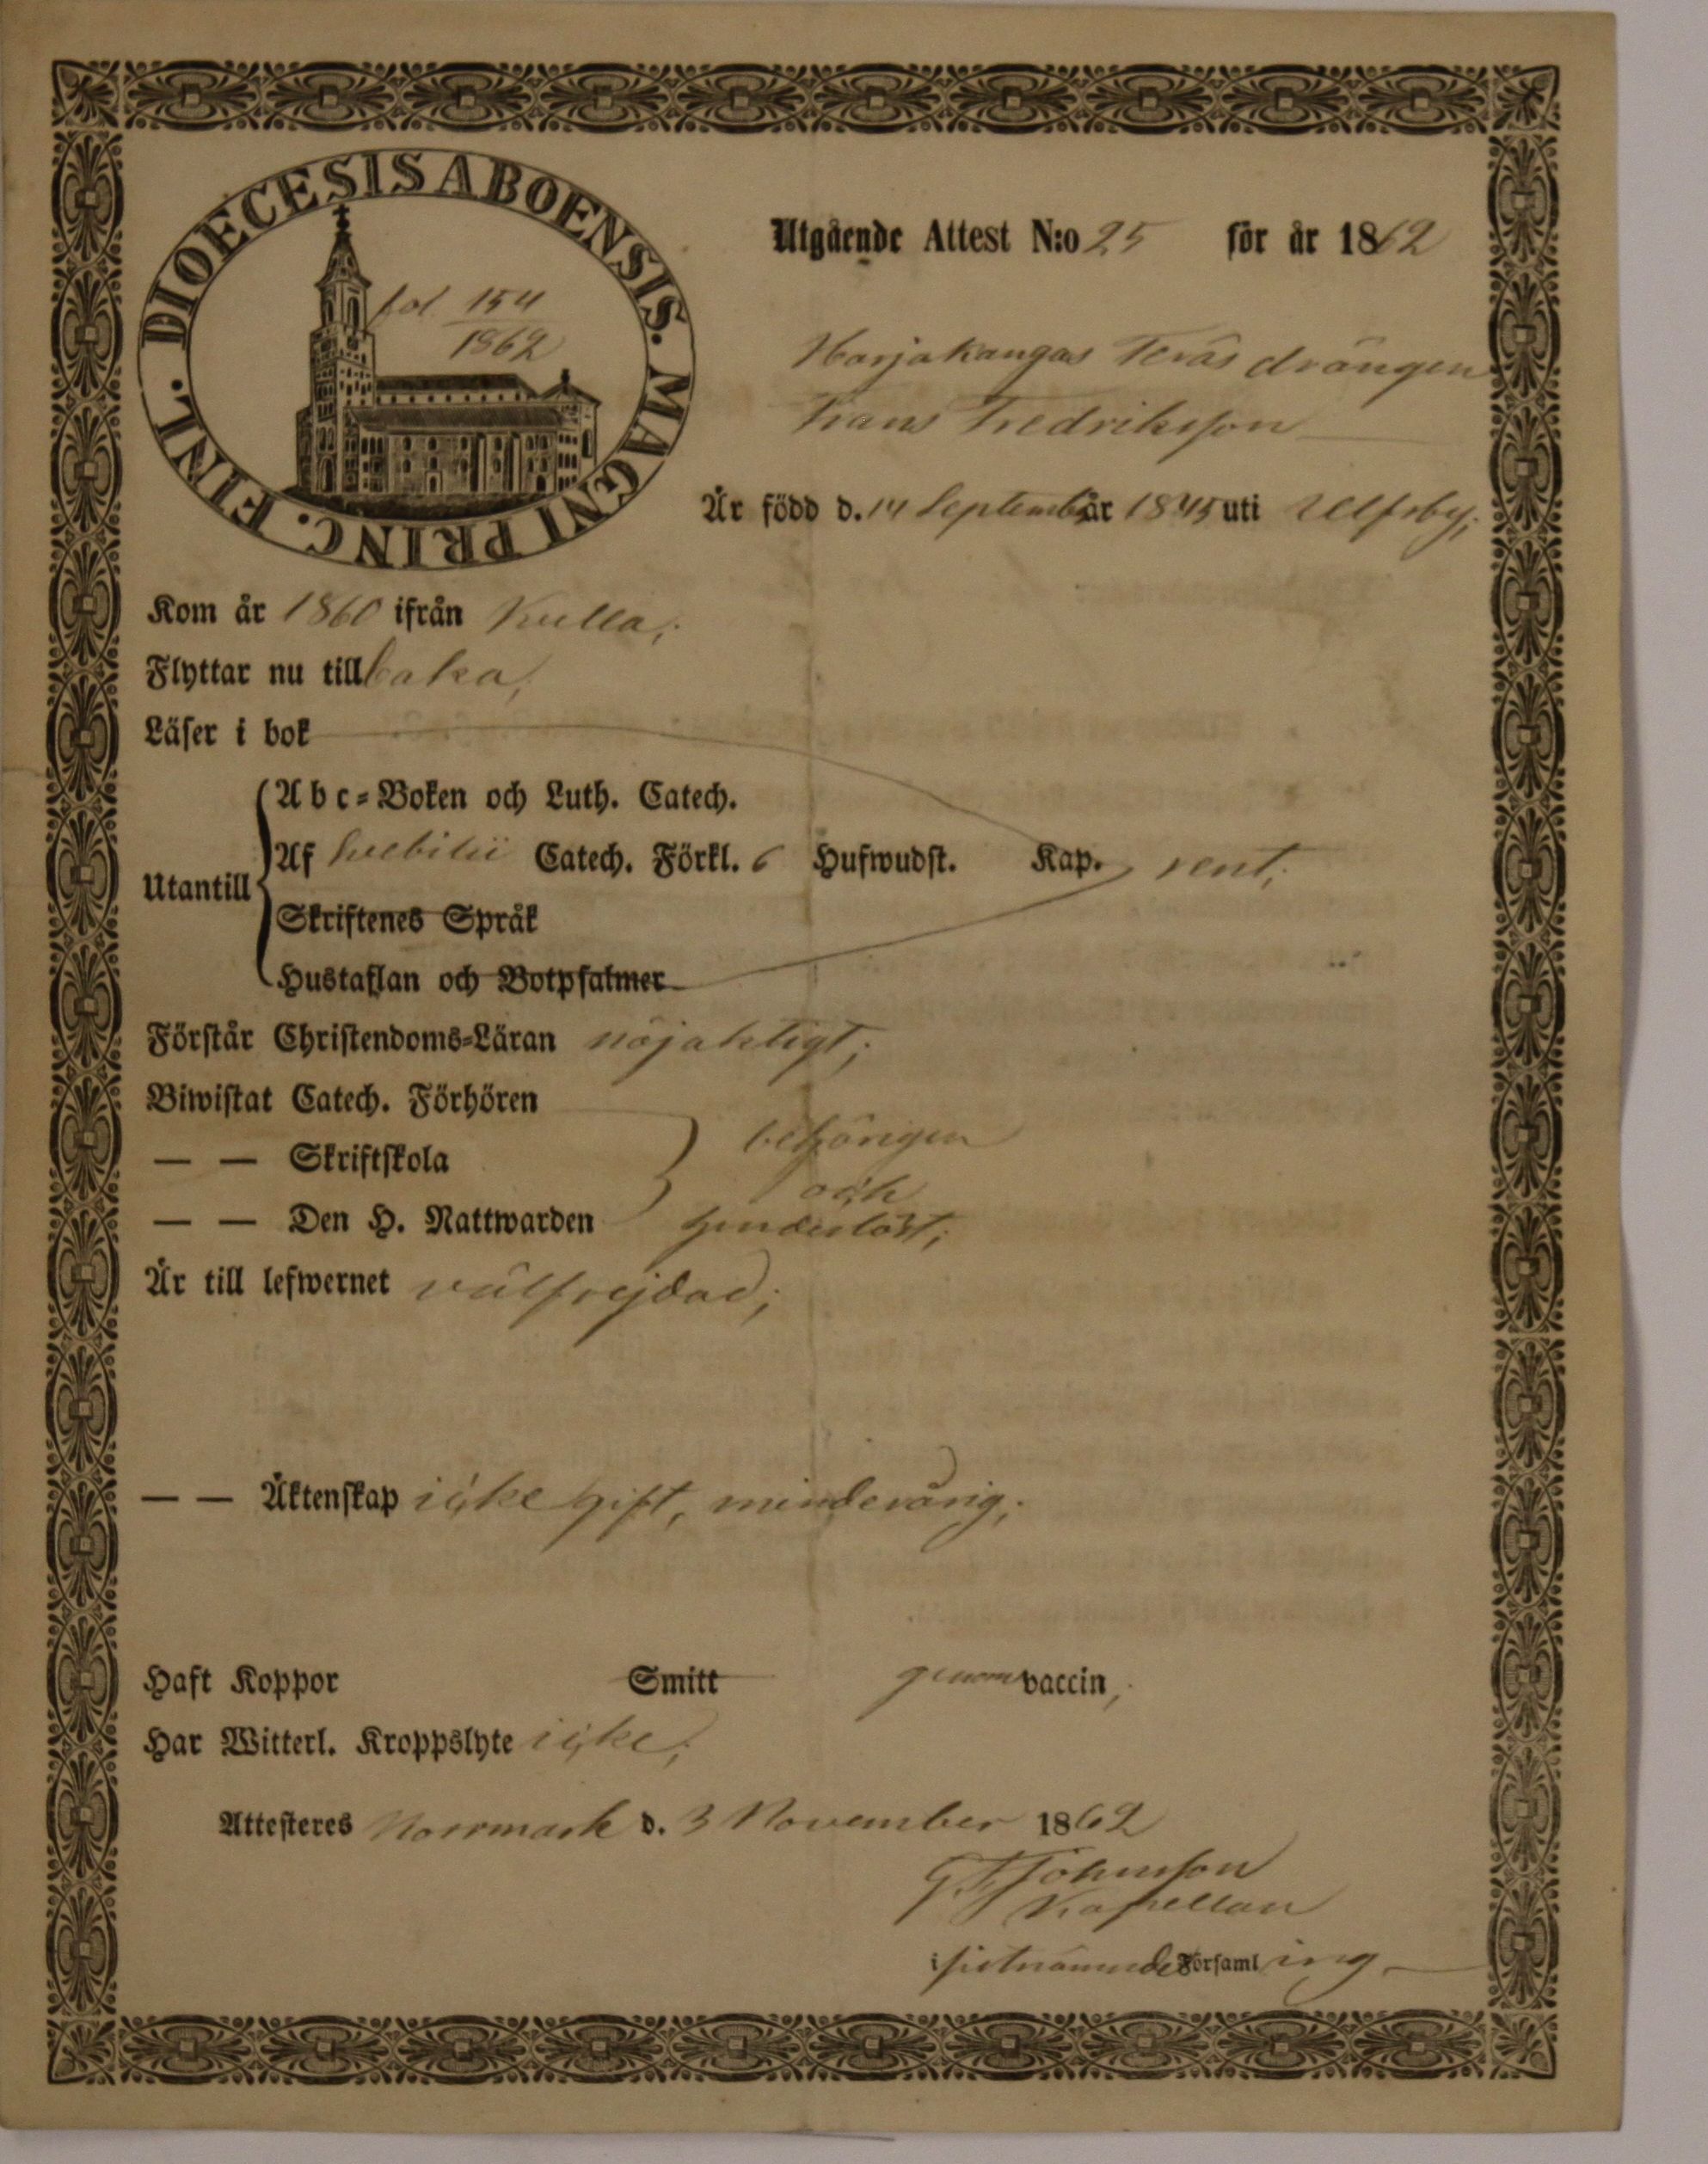 DIOECESIS ABOENSIS. MAGNI PRINC. FINL.
fol 154
1862
Utgående Attest N:o 25 för år 1862
Harjakangas Teräs drängen
Frans Fredriksson
Är född d. 14 September år 1845 uti Ulfsby;
Kom år 1860 ifrån Kulla;
Flyttar nu tillbaka;
Läser i bok
Abc-Boken och Luth. Catech.
Utantill
Af Svebilii Catech. Förkl. 6 Hufwudst. Kap. rent;
Skriftenes Språk
Hustaflan och Botpsalmer
Förstår Christendoms-Läran nöjaktigt;
Biwistat Catech. Förhören
behörigen
— — Skriftskola
och
— — Den H. Nattwarden hinderlöst;
Är till lefwernet välfrejdad;
— — Äktenskap icke gift, minderårig;
Haft Koppor Smitt genom vaccin;
Har Witterl. Kroppslyte icke;
Attesteres Norrmark d. 3 November 1862
Johnsson
Kapellan
i sistnämnde Församling